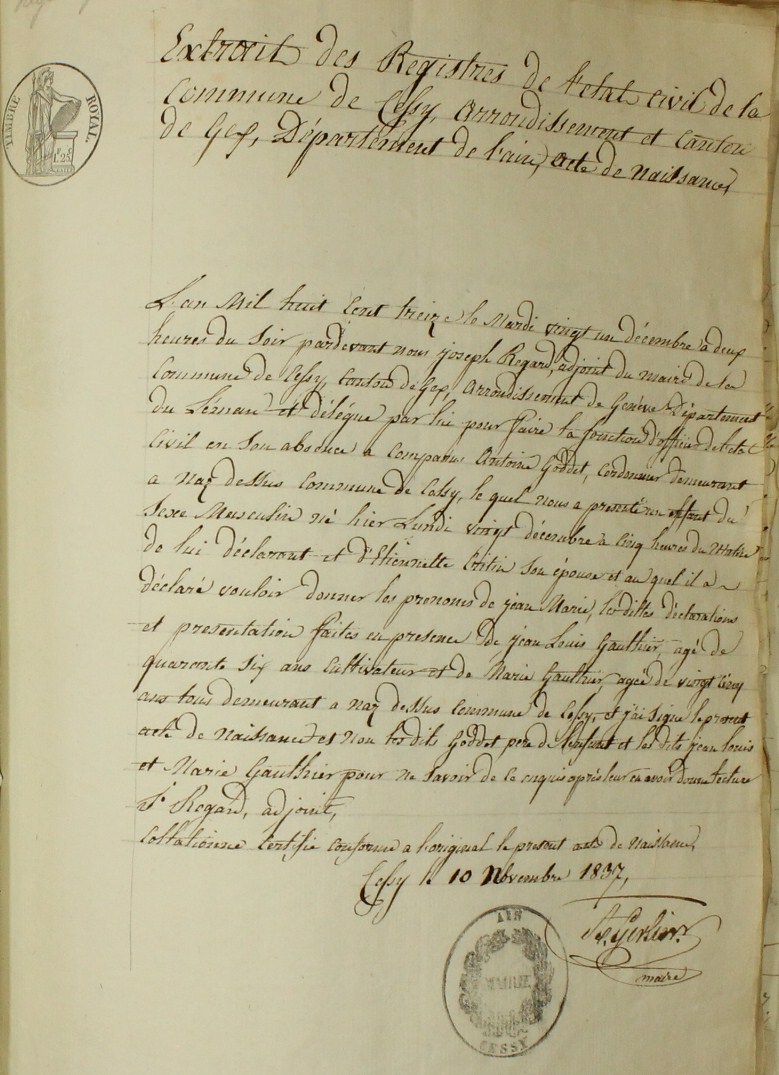 TIMBRE ROYAL.
1.25
Extrait des Registres de l'etat civil de la
Commune de Cessy, arrondissement et canton
de Gex, Département de l'ain, acte de naissance,
L'an Mil huit Cent treize le Mardi vingt un décembre a deux
heures du Soir pardevant nous joseph Regard, adjoint du maire de la
Commune de Cessy, Canton de Gex, Arrondissement de Genève Département
du Léman et délégue par lui pour faire la fonction d'officier de l'etat
Civil en Son absence a Comparus Antoine Goddet, Cordonnier demeurant
a Naz dessus Commune de Cessy, le quel nous a presenté un enfant du
Sexe Musculin né hier Lundi vingt décembre à Cinq heures du Matin
de lui déclarant et d'Etiennette son épouse et au quel il a
déclaré vouloir donner les prenoms de jean Marie, les dittes déclarations
et presentation faites en presence de jean Louis Gauthier, agé de
quarante Six ans Cultivateur et de Marie Gauthier agée de vingt Cinq
ans tous demeurant a Naz dessus Commune de Cessy, et j'ai Signé le present
acte de Naissance et Non les dits Goddet pere de l'enfant et les dits jean Louis
et Marie Gauthier pour ne Savoir de ce enquis après leur en avoir donné lecture
Sé Regard, adjoint,
Collationné Certifié Conforme a l'original le present acte de Naissance,
Cessy le 10 Novembre 1837,
maire
AIN
MAIRIE
CESSY